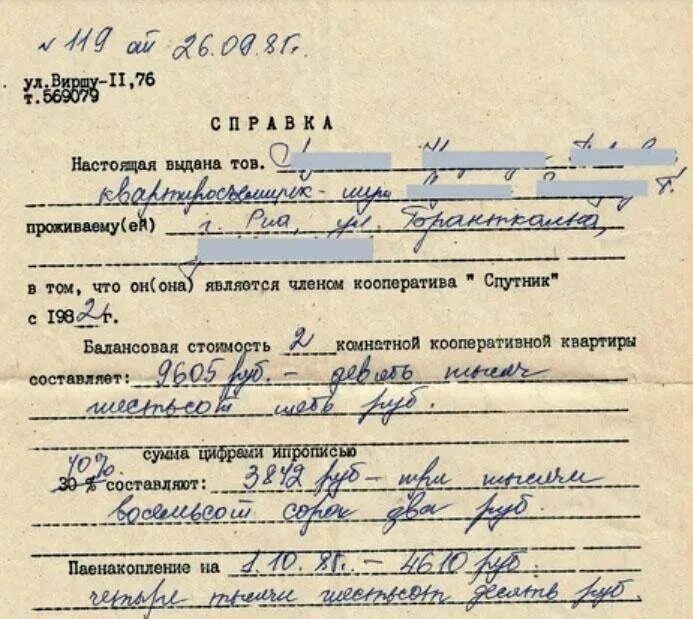 № 119 от 26.09.85г.
ул.Виршу-II,76
т.569079
СПРАВКА
Настоящая выдана тов.
квартиросъемщик - муж Г.
проживаему(ей) г. Рига, ул.
в том, что он(она) является членом кооператива " Спутник"
с 1982 г.
Балансовая стоимость 2 комнатной кооперативной квартиры
составляет: 9605 руб. - девять тысяч
шестьсот пять руб.
сумма цифрами ипрописью
40%
30 % составляют: 3842 руб - три тысячи
восемьсот сорок два руб
Паенакопление на 1.10.85г. - 4610 руб.
четыре тысячи шестьсот десять руб.